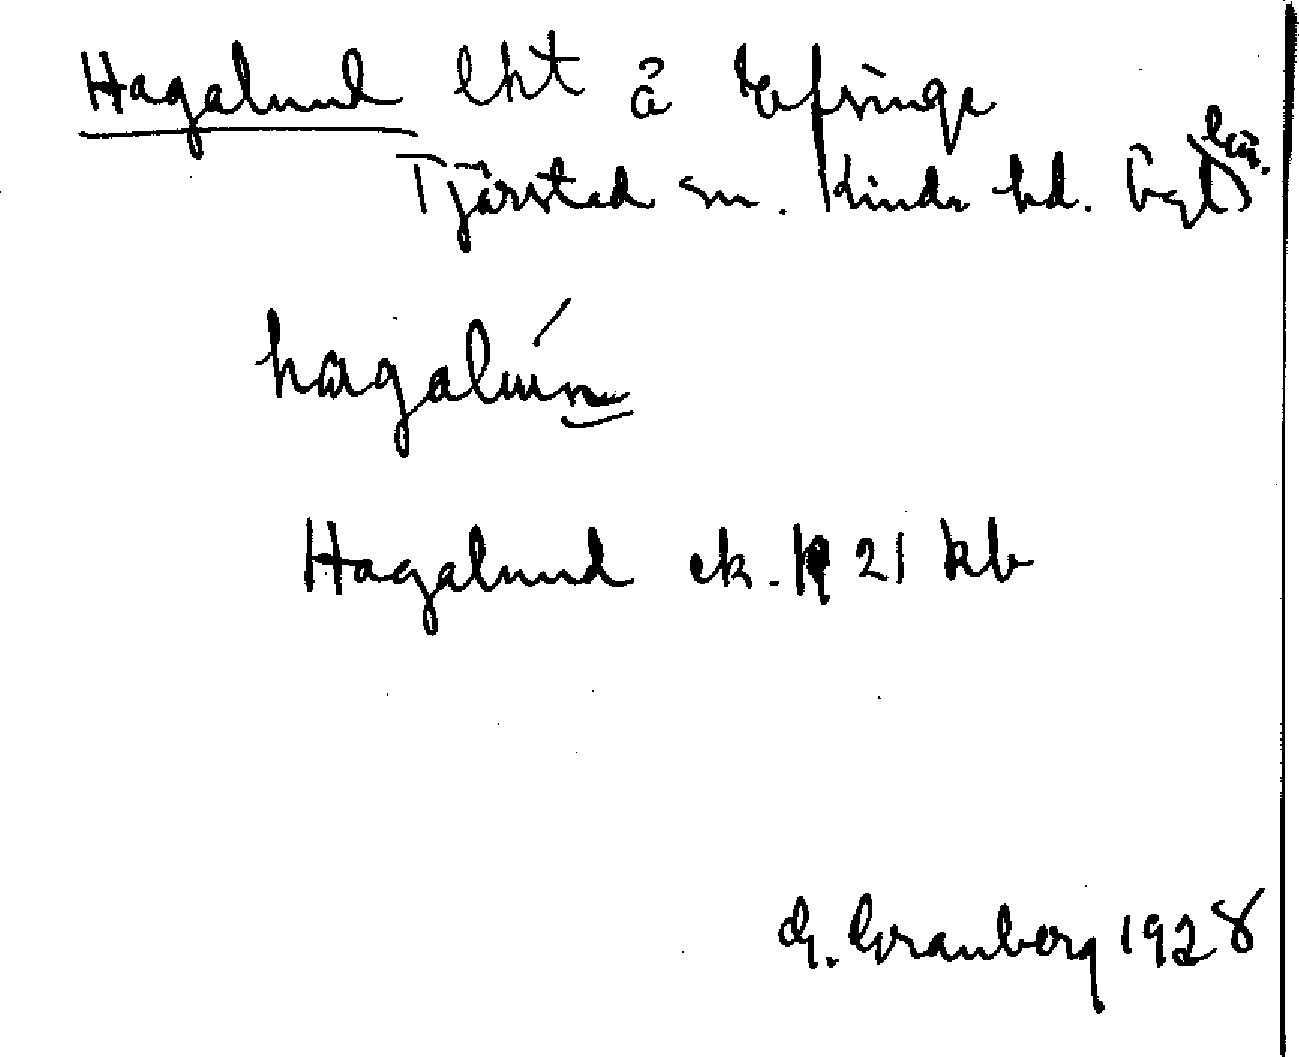 Hagalund lht å Efsinge
Tjärstad sn. Kinda hd. Ögl. län.
hagalún
Hagalund ek. 1921 kb
G. Granberg 1928